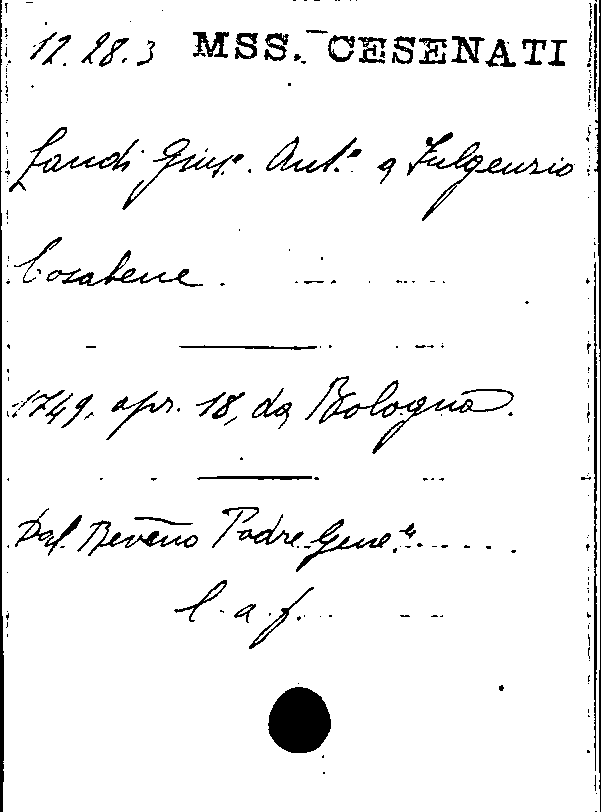 12.28.3 MSS. CESENATI
Landi Gius.e Ant.o a Fulgenzio
Cosabene.
1749, apr. 18, da Bologna.
Dal Reveño Padre Gene.le
l. a. f.